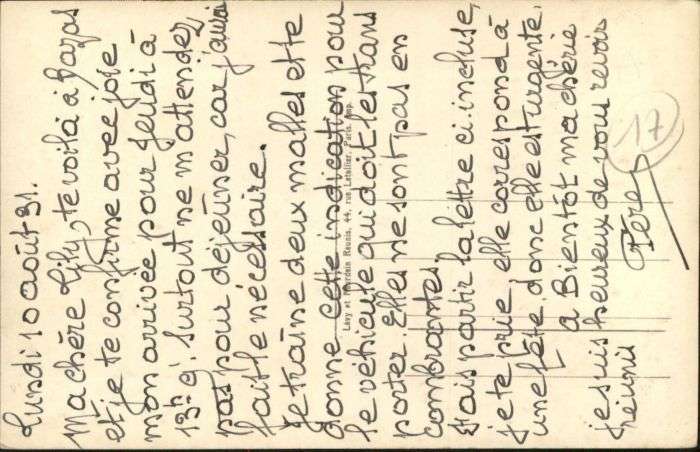 Lundi 10 août 31.
Ma chère Lily, te voilà à Bazas
et je te confirme avec joie
mon arrivée pour jeudi à
13h 9'. Surtout ne m'attendez
pas pour déjeuner, car j'aurai
fait le nécessaire.
Je traîne deux malles et te
donne cette indication pour
le véhicule qui doit les trans
porter. Elles ne sont pas en
combrantes
Fais partir la lettre ci incluse,
je te prie, elle correspond à
une fête, donc elle est urgente.
à Bientôt ma chérie
je suis heureux de vous revoir
réunis
Père
17
Lévy et Neurdein Réunis, 44, rue Letellier, Paris. Imp.